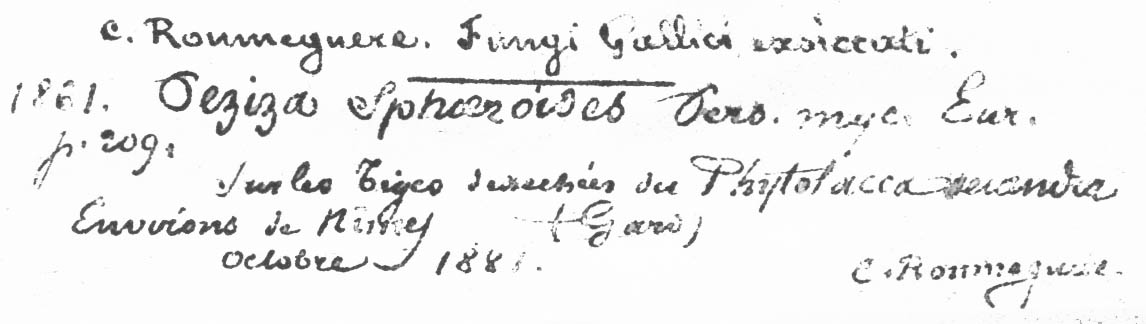 C. Roumeguere. Fungi Gallici exsiccati.
1861. Peziza Sphæroides Pers. myc. Eur.
p. 209.
Sur les tiges desséchées du Phytolacca decandra
Environs de Nimes (Gard)
Octobre 1881.
C. Roumeguere.